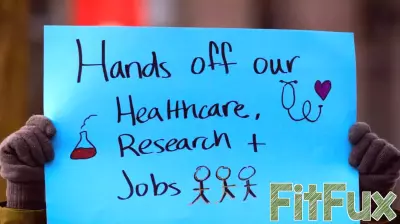 Hands off our
Healthcare,
Research +
Jobs
FitFux